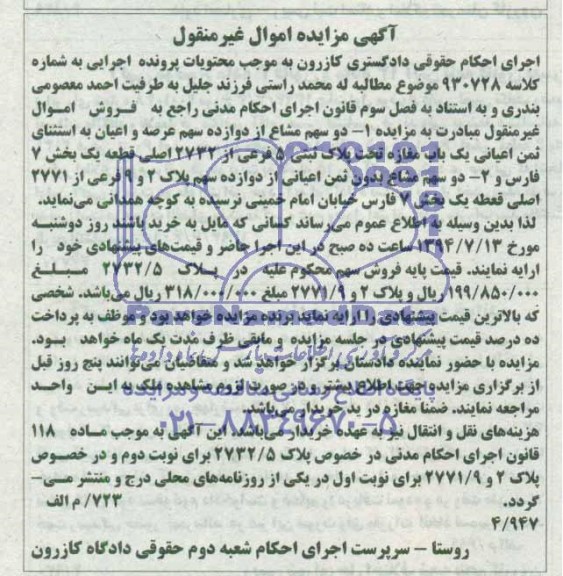 آگهی مزایده اموال غیرمنقول
اجرای احکام حقوقی دادگستری کازرون به موجب محتویات پرونده اجرایی به شماره
کلاسه ۹۳۰۷۲۸ موضوع مطالبه له محمد راستی فرزند جلیل به طرفیت احمد معصومی
بندری و به استناد به فصل سوم قانون اجرای احکام مدنی راجع به فروش اموال
غیرمنقول مبادرت به مزایده ۱- دو سهم مشاع از دوازده سهم عرصه و اعیان به استثنای
ثمن اعیانی یک باب مغازه تحت پلاک ثبتی ۵ فرعی از ۲۷۳۲ اصلی قطعه یک بخش ۷
فارس و ۲- دو سهم مشاع بدون ثمن اعیانی از دوازده سهم پلاک ۲ و ۹ فرعی از ۲۷۷۱
اصلی قعطه یک بخش ۷ فارس خیابان امام خمینی نرسیده به کوچه همدانی می‌نماید.
لذا بدین وسیله به اطلاع عموم می‌رساند کسانی که مایل به خرید باشند روز دوشنبه
مورخ ۱۳۹۴/۷/۱۳ ساعت ده صبح در این اجرا حاضر و قیمت‌های پیشنهادی خود را
ارایه نمایند. قیمت پایه فروش سهم محکوم علیه در پلاک ۲۷۳۲/۵ مبلغ
۱۹۹/۸۵۰/۰۰۰ ریال و پلاک ۲ و ۲۷۷۱/۹ مبلغ ۳۱۸/۰۰۰/۰۰۰ ریال می‌باشد. شخصی
که بالاترین قیمت پیشنهادی را ارایه نماید برنده مزایده خواهد بود و موظف به پرداخت
ده درصد قیمت پیشنهادی در جلسه مزایده و مابقی ظرف مدت یک ماه خواهد بود.
مزایده با حضور نماینده دادستان برگزار خواهد شد و متقاضیان می‌توانند پنج روز قبل
از برگزاری مزایده جهت اطلاع بیشتر و در صورت لزوم مشاهده ملک به این واحد
مراجعه نمایند. ضمنا مغازه در ید خریدار می‌باشد.
هزینه‌های نقل و انتقال نیز به عهده خریدار می‌باشد. این آگهی به موجب ماده ۱۱۸
قانون اجرای احکام مدنی در خصوص پلاک ۲۷۳۲/۵ برای نوبت دوم و در خصوص
پلاک ۲ و ۲۷۷۱/۹ برای نوبت اول در یکی از روزنامه‌های محلی درج و منتشر می-
گردد.
۷۲۳/م الف
۴/۹۴۷
روستا - سرپرست اجرای احکام شعبه دوم حقوقی دادگاه کازرون
۰۲۱-۸۸۳۴۹۶۷۰-۵